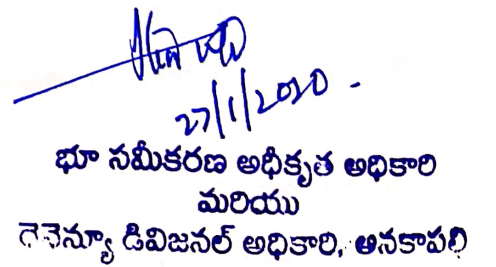 27/1/2020.
భూ సమీకరణ అధీకృత అధికారి
మరియు
రెవెన్యూ డివిజనల్ అధికారి, అనకాపల్లి